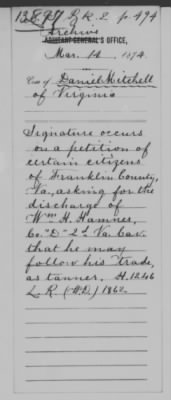 13897 R.R. 2 p. 494
Archive
ADJUTANT GENERAL'S OFFICE,
Mar. 14, 1874.
Case of Daniel Mitchell
of Virginia
Signature occurs
on a petition of
certain citizens
of Franklin County,
Va., asking for the
discharge of
Wm. H. Hamnes,
Co. "D" 2d Va. Cav.
that he may
follow his trade,
as tanner. H. 1246
L. R. (W.D.) 1862.